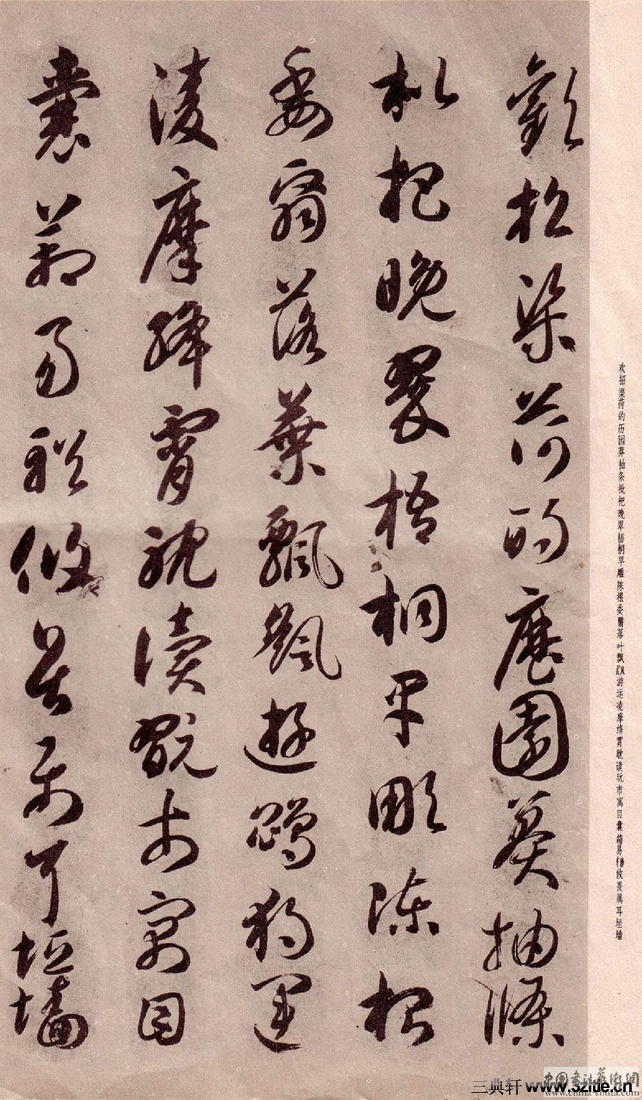 歡招渠荷的歷園莽抽條
枇杷晚翠梧桐早彫陳根
委翳落葉飄飖遊鵾獨運
凌摩絳霄耽讀翫市寓目
囊箱易輶攸畏屬耳垣墻
欢招渠荷的历园莽抽条枇杷晚翠梧桐早雕陈根委翳落叶飘飖游运凌摩绛霄耽读玩市寓目囊箱易輶攸畏属耳垣墙
三典轩 www.3zitie.cn